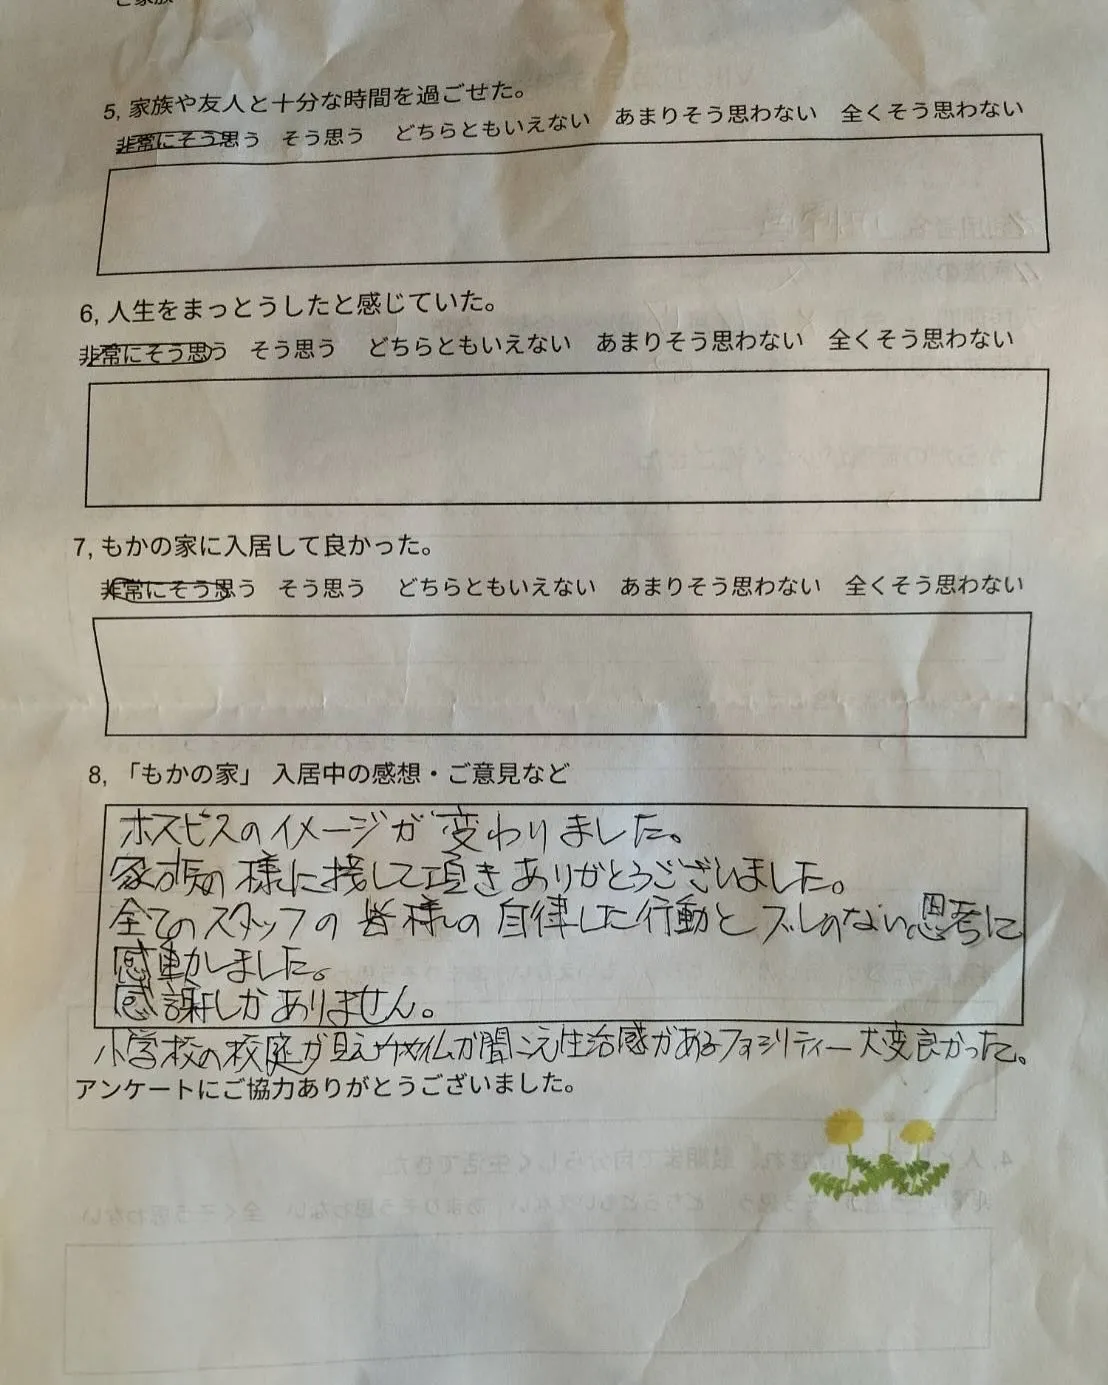 ご家族
5, 家族や友人と十分な時間を過ごせた。
非常にそう思う そう思う どちらともいえない あまりそう思わない 全くそう思わない
6, 人生をまっとうしたと感じていた。
非常にそう思う そう思う どちらともいえない あまりそう思わない 全くそう思わない
7, もかの家に入居して良かった。
非常にそう思う そう思う どちらともいえない あまりそう思わない 全くそう思わない
8, 「もかの家」 入居中の感想・ご意見など
ホスピスのイメージが変わりました。
家族の様に接して頂きありがとうございました。
全てのスタッフの皆様の自律した行動とブレのない思考に
感動しました。
感謝しかありません。
小学校の校庭が見えチャイムが聞こえ生活感があるファシリティー大変良かった。
アンケートにご協力ありがとうございました。